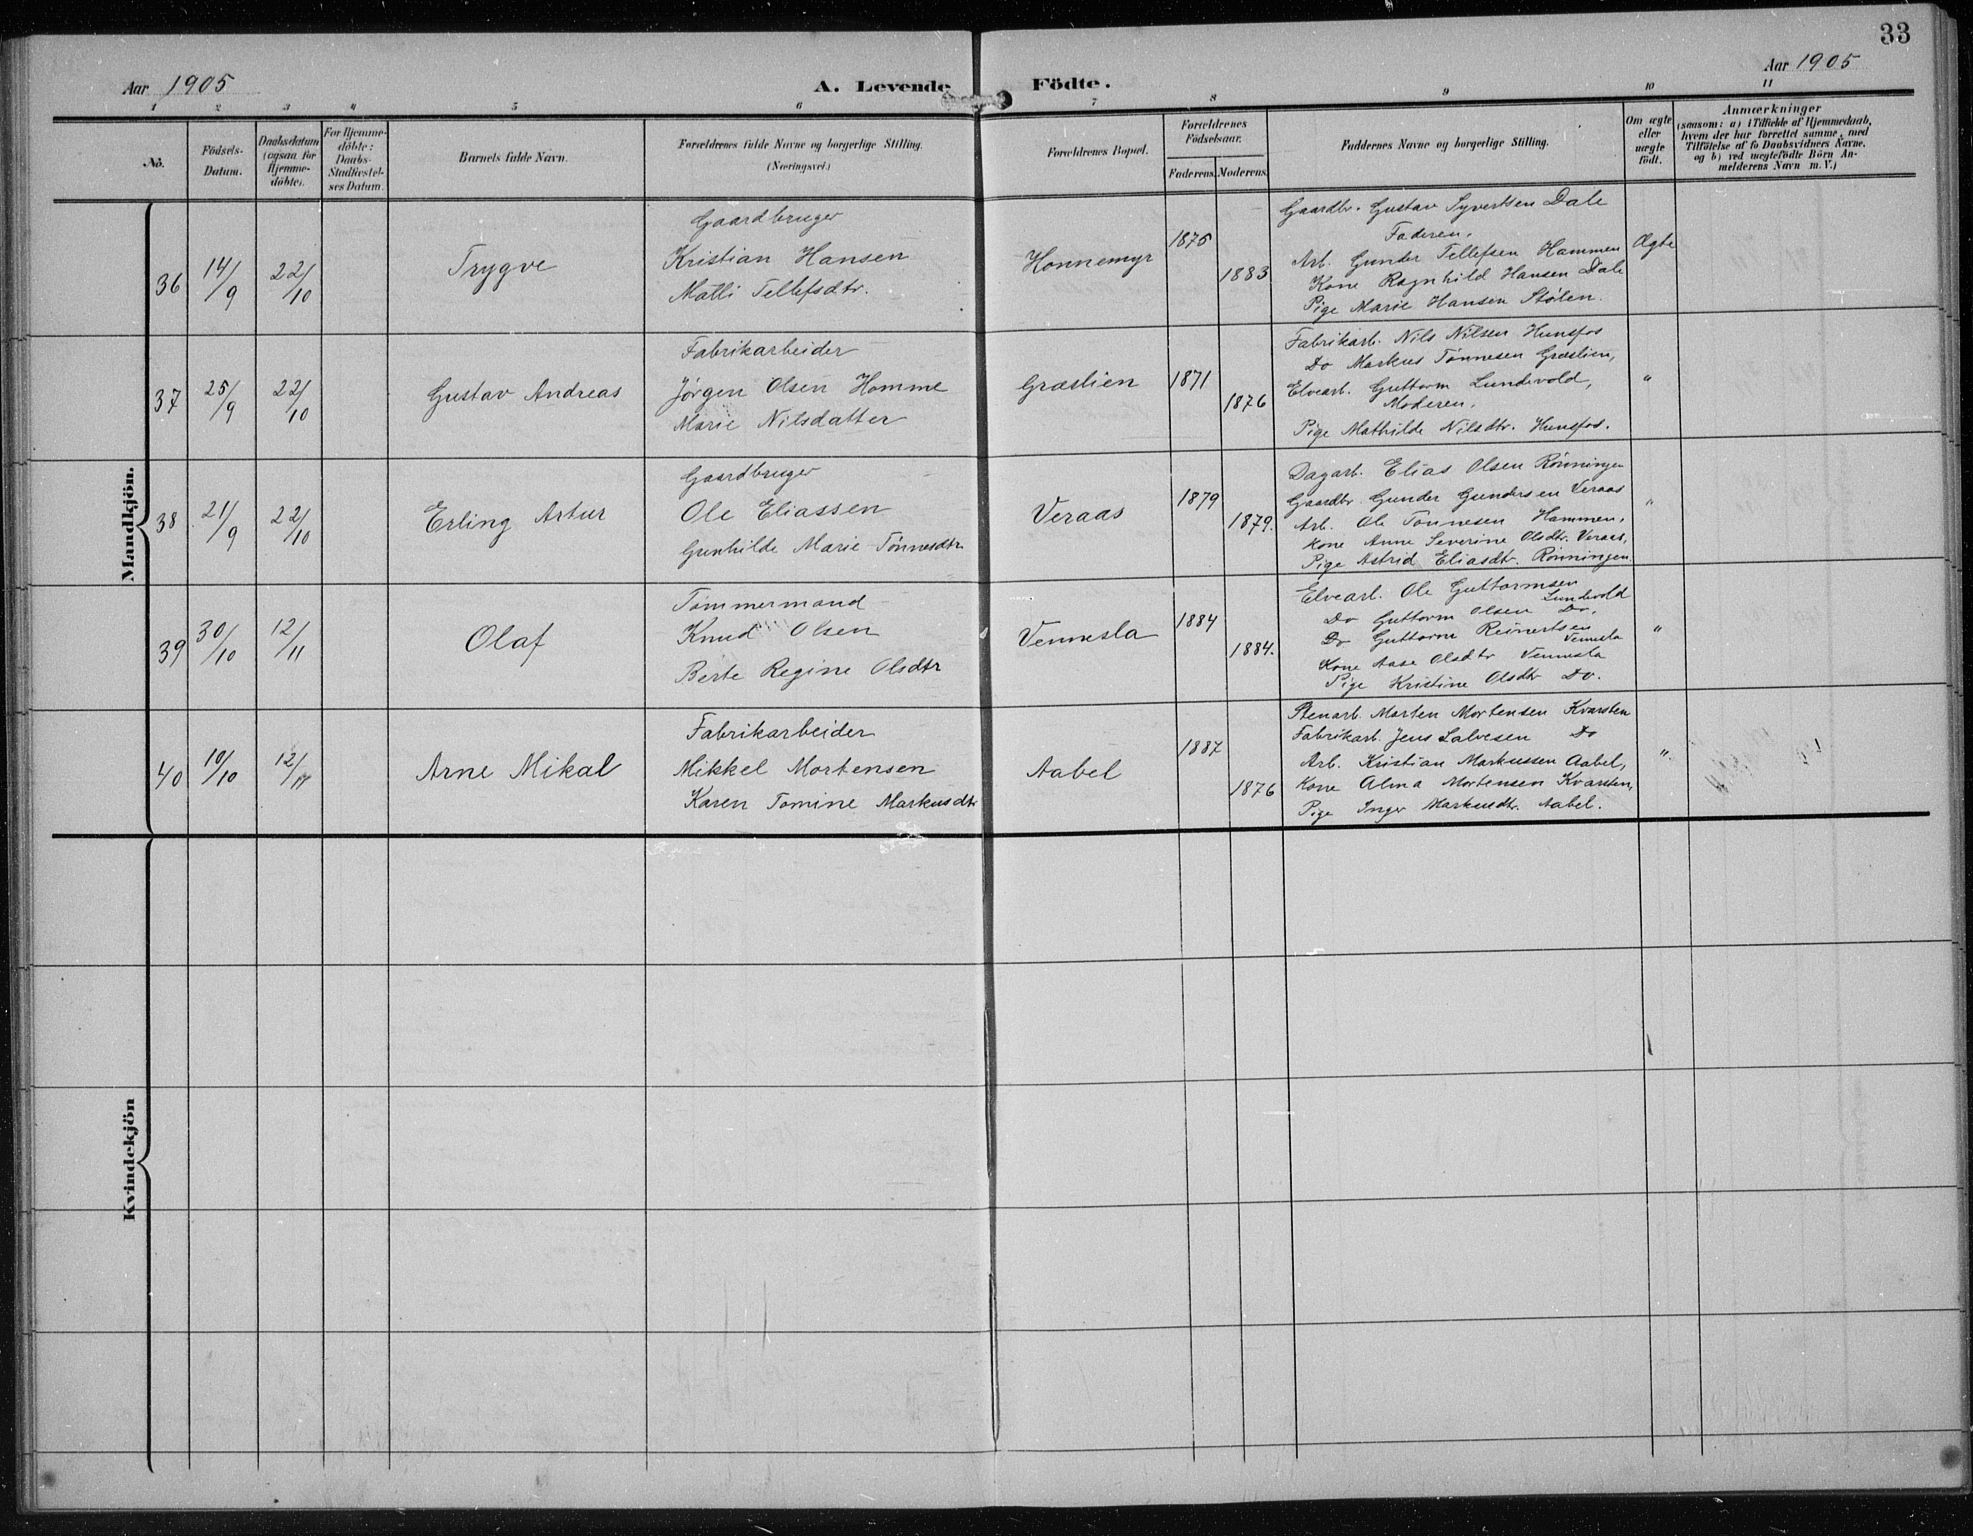 33
Aar 1905
A. Levende Födte.
Aar 1905
1 2 3 4 5 6 7 8 9 10 11
No.
Födsels-
Datum.
Daabsdatum
(ogsaa for
Hjemme-
döbte).
For Hjemme-
döbte:
Daabs-
Stadfæstel-
ses Datum.
Barnets fulde Navn.
Forældrenes fulde Navne og borgerlige Stilling.
(Næringsvei.)
Forældrenes Bopæl.
Forældrenes
Födselsaar.
Faderens. Moderens.
Faddernes Navne og borgerlige Stilling.
Om ægte
eller
uægte
födt.
Anmærkninger
(saasom: a) i Tilfælde af Hjemmedaab,
hvem der har forrettet samme, med
Tilföielse af to Daabsvidners Navne,
og b) ved uægtefödte Börn An-
melderens Navn m. V.)
Mandkjön.
36 14/9 22/10 Trygve
Gaardbruger
Kristian Hansen
Malli Tellefsdtr.
Honnemyr 1875 1883
Gaardbr. Gustav Syvertsen Dale
Faderen.
Arb. Gunder Tellefsen Hammen
Kone Ragnhild Hansen Dale
Pige Marie Hansen Stølen.
Ægte
37 25/9 22/10 Gustav Andreas
Fabrikarbeider
Jörgen Olsen Homme
Marie Nilsdatter
Græslien 1871 1876
Fabrikarb. Nils Nilsen Hunsfos
Do Markus Tönnesen Græslien,
Elvearb. Guttorm Lundevold,
Moderen.
Pige Mathilde Nilsdtr. Hunsfos.
"
38 21/9 22/10 Erling Artur
Gaardbruger
Ole Eliassen
Gunhilde Marie Tönnesdtr.
Veraas 1879 1879.
Dagarb. Elias Olsen Rönningen
Gaardbr. Gunder Gundersen Veraas
Arb. Ole Tönnesen Hammen,
Kone Anne Severine Olsdtr. Veraas,
Pige Astrid Eliasdtr. Rönningen
"
39 30/10 12/11 Olaf
Tömmermand
Knud Olsen
Berte Regine Olsdtr
Vennesla 1884 1884.
Elvearb. Ole Guttormsen
Lundevold
Do Guttorm Olsen Do.
Do Guttorm Reinertsen
Vennesla
Kone Aase Olsdtr Vennesla
Pige Kristine Olsdtr Do.
"
40 10/10 12/11 Arne Mikal
Fabrikarbeider
Mikkel Mortensen
Karen Tomine Markusdtr
Aabel 1887 1876
Stenarb. Morten Mortensen Kvarsten
Fabrikarb. Jens Salvesen Do
Arb. Kristian Markussen Aabel,
Kone Alma Mortensen Kvarsten,
Pige Inger Markusdtr. Aabel.
"
Kvindekjön